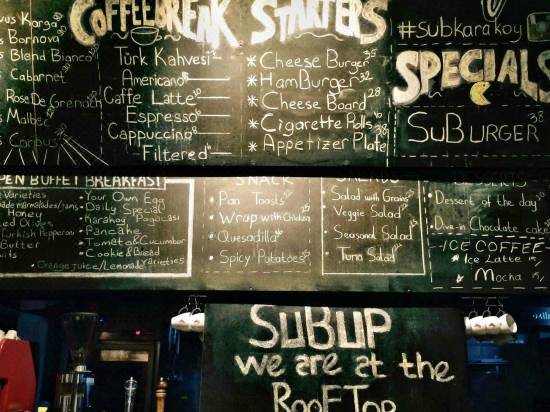 COFFEEBREAK
Türk Kahvesi
Americano
Caffe Latte
Espresso
Cappuccino
Filtered
STARTERS
* Cheese Burger 35
* HamBurger 32
* Cheese Board 28
* Cigarette Rolls
* Appetizer Plate
#subkarakoy
SPECIALS
SuBURGER 38
Karga
Bornova
Blend Bianco
Cabarnet
Rose De Grenach
Malbec
Corpus
OPEN BUFFET BREAKFAST
Varieties
Honey
Olives
Turkish Pepperoni
Butter
• Your Own Egg
• Daily Special
• Karaköy Pogacasi
• Pancake
• Tomato & Cucumber
• Cookie & Bread varieties
• Orange juice/Lemonade
SNACK
• Pan Toasts
• Wrap with Chicken
• Quesadilla
• Spicy Potatoes
SALADS
• Salad with Grains
• Veggie Salad
• Seasonal Salad
• Tuna Salad
• Dessert of the day
• Dive-in Chocolate cake
ICE COFFEE
* Ice Latte
* Mocha
SUBUP
we are at the
ROOFTOP